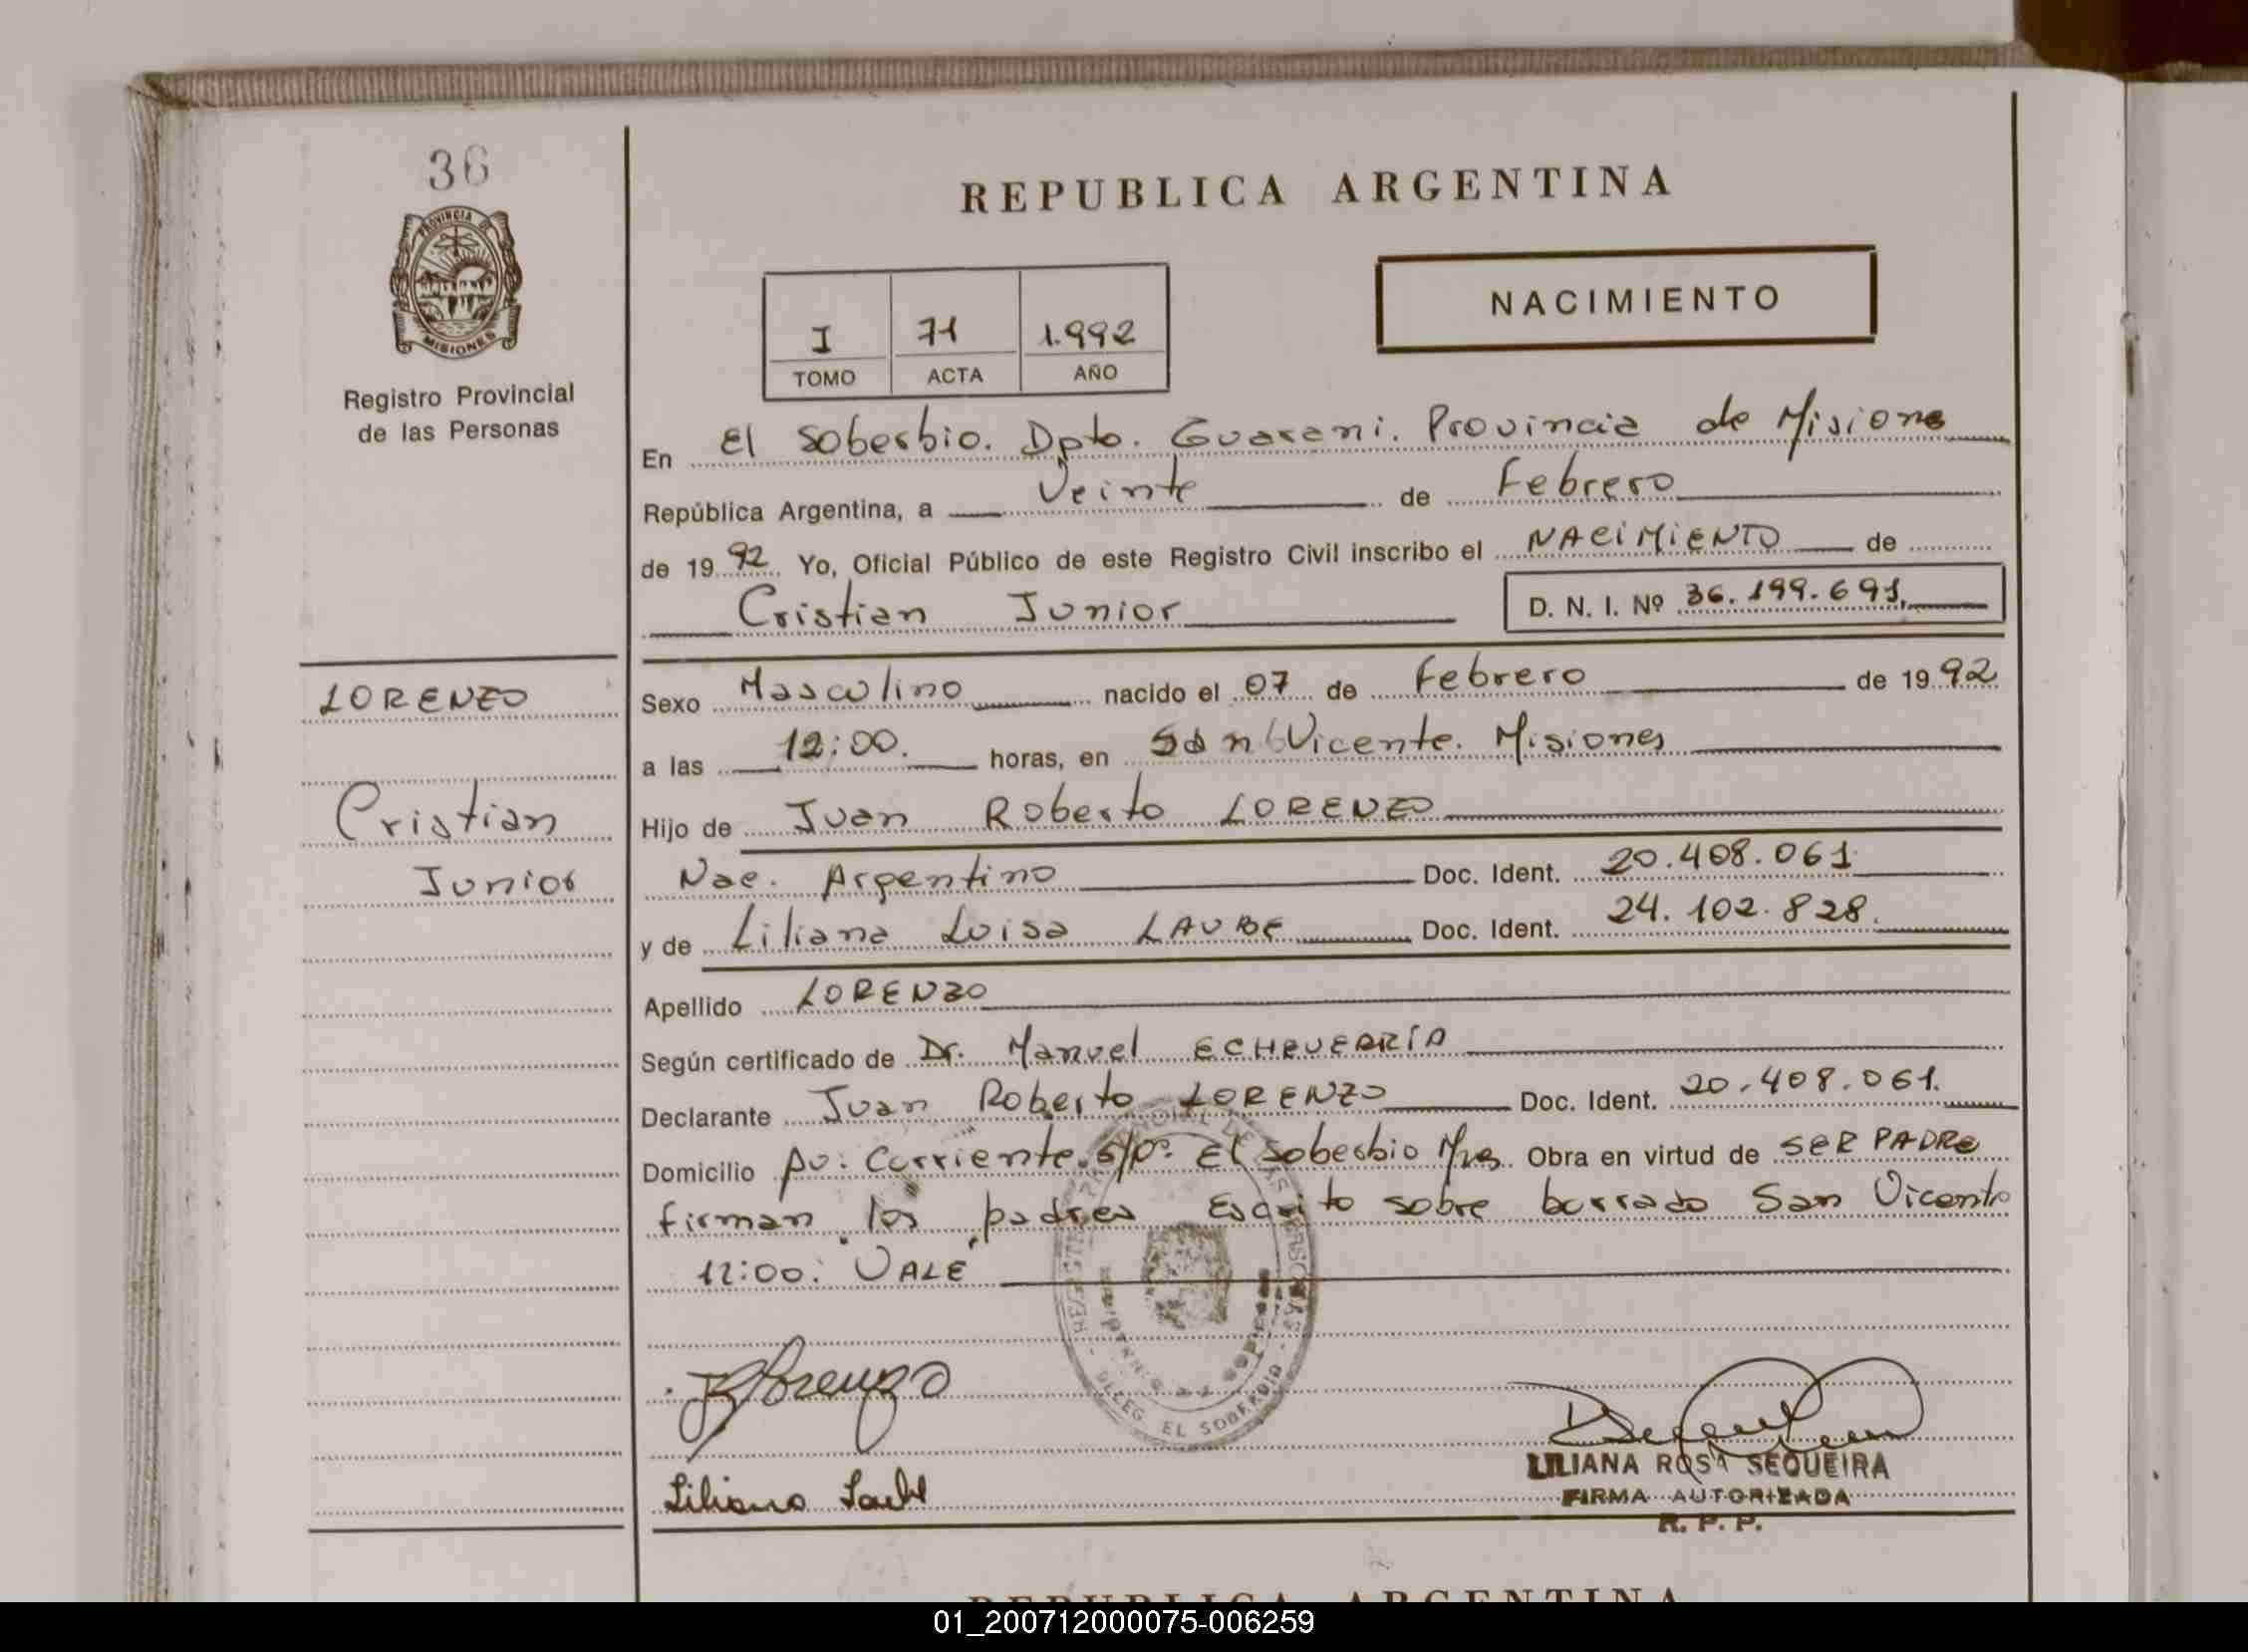 36
PROVINCIA DE
MISIONES
Registro Provincial
de las Personas
REPUBLICA ARGENTINA
NACIMIENTO
I 71 1.992
TOMO ACTA AÑO
En El Soberbio. Dpto. Guarani. Provincia de Misiones
República Argentina, a Veinte de Febrero
de 1992 Yo, Oficial Público de este Registro Civil inscribo el NACIMIENTO de
Cristian Junior D. N. I. Nº 36.199.691.
LORENZO
Cristian
Junior
Sexo Masculino nacido el 07 de Febrero de 1992
a las 12:00. horas, en San Vicente. Misiones
Hijo de Juan Roberto LORENZO
Nac. Argentino Doc. Ident. 20.408.061
y de Liliana Luisa LAUBE Doc. Ident. 24.102.828.
Apellido LORENZO
Según certificado de Dr. Manuel ECHEVERRÍA
Declarante Juan Roberto LORENZO Doc. Ident. 20.408.061.
Domicilio Av. Corriente. s/nº. El Soberbio Mnes. Obra en virtud de SER PADRE
firman los padres Escrito sobre borrado San Vicente
12:00. "VALE"
REGISTRO PROVINCIAL DE LAS PERSONAS
DELEG. EL SOBERBIO
Lorenzo
Liliana Laube
LILIANA ROSA SEQUEIRA
FIRMA AUTORIZADA
R. P. P.
REPUBLICA ARGENTINA
01_200712000075-006259